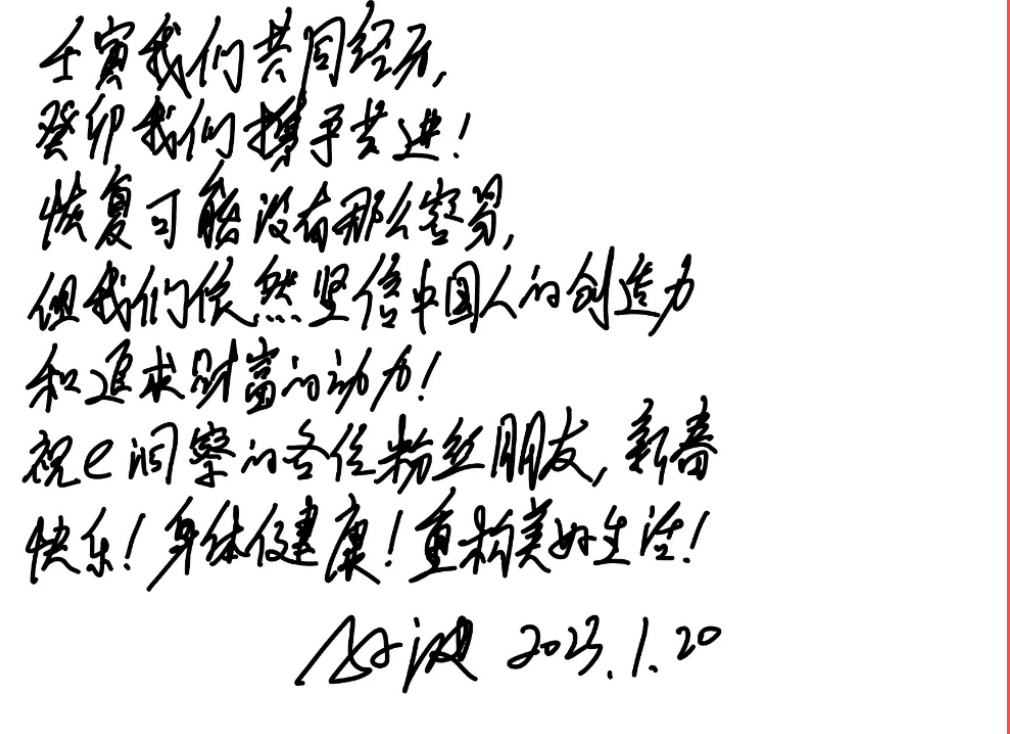 壬寅我们共同经历，
癸卯我们携手共进！
恢复可能没有那么容易，
但我们依然坚信中国人的创造力
和追求财富的动力！
祝e洞察的各位粉丝朋友，新春
快乐！身体健康！重构美好生活！
2023.1.20